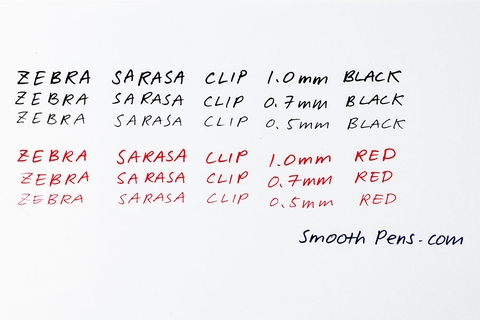 ZEBRA SARASA CLIP 1.0mm BLACK
ZEBRA SARASA CLIP 0.7mm BLACK
ZEBRA SARASA CLIP 0.5mm BLACK
ZEBRA SARASA CLIP 1.0mm RED
ZEBRA SARASA CLIP 0.7mm RED
ZEBRA SARASA CLIP 0.5mm RED
Smooth Pens.com